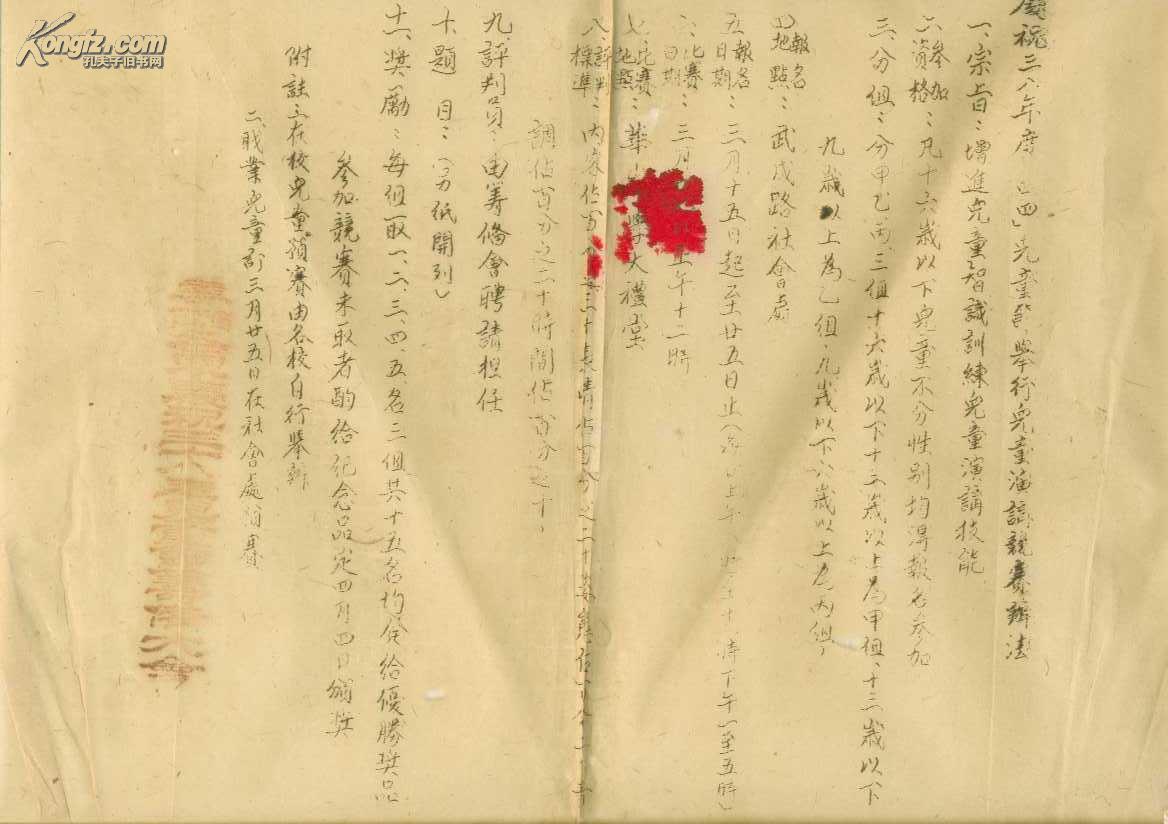 慶祝三八年度「四四」兒童節舉行兒童演講競賽辦法
一、宗旨：增進兒童智識訓練兒童演講技能
二、參加資格：凡十六歲以下兒童不分性別均得報名參加
三、分組：分甲乙丙三組十六歲以下十三歲以上為甲組、十三歲以下
九歲以上為乙組、九歲以下六歲以上為丙組、
四、報名地點：武成路社會處
五、報名日期：三月十五日起至廿五日止（上午 至十時下午一至五時）
六、比賽日期：三月 上午十二時
七、比賽地點：華 學大禮堂
八、評判標準：內容佔百分之三十表情佔百分之二十 百分之二十
調佔百分之二十時間佔百分之十、
九、評判員：由籌備會聘請担任
十、題目：（另紙開列）
十一、獎勵：每組取一、二、三、四、五、名三組共十五名均發給優勝獎品
參加競賽未取者酌給紀念品定四月四日頒獎
附註：一、在校兒童預賽由各校自行舉辦
二、職業兒童訂三月廿五日在社會處預賽
Kongfz.com
孔夫子旧书网